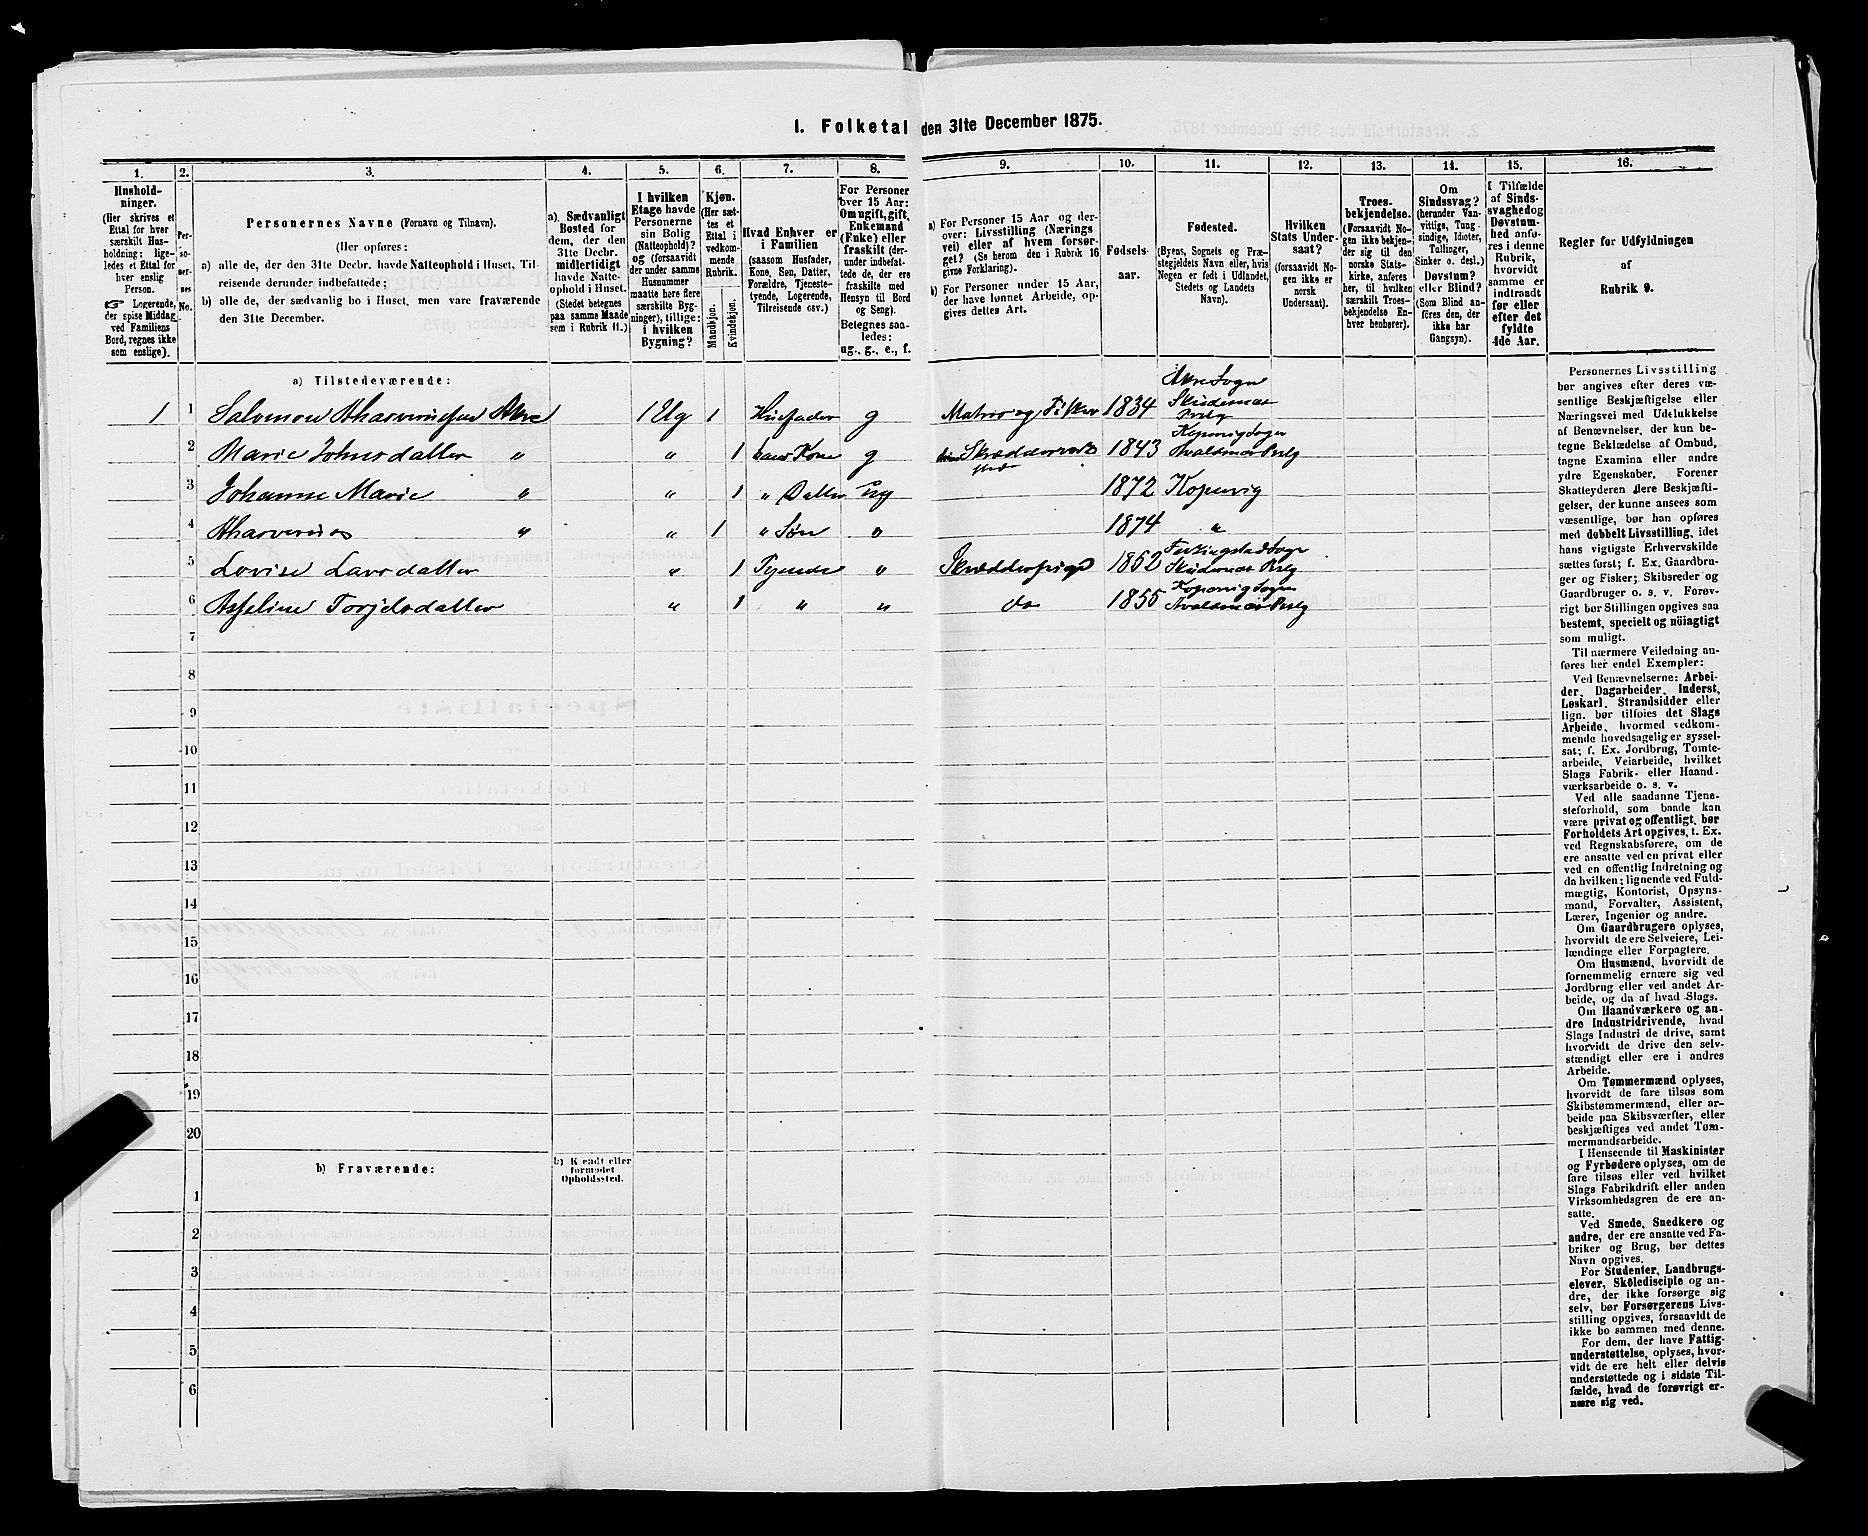 1. Folketal den 31te December 1875.
1.
2.
3.
4.
5.
6.
7.
8.
9.
10.
11.
12.
13.
14.
15.
16.
Husholdninger.
(Her skrives et
Ettal for hver
særskilt Husholdning; ligeledes
et Ettal for
hver enslig
Person.
☞ Logerende,
der spise Middag
ved Familiens
Bord, regnes ikke
som enslige).
Personernes No.
Personernes Navne (Fornavn og Tilnavn).
(Her opføres:
a) alle de, der den 31te Decbr. havde Natteophold i Huset, Tilreisende
derunder indbefattede;
b) alle de, der sædvanlig bo i Huset, men vare fraværende
den 31te December.
a) Sædvanligt
Bosted for
dem, der den
31te Decbr.
midlertidigt
havde Natteophold
i Huset.
(Stedet betegnes
paa samme Maade
som i Rubrik 11.)
I hvilken
Etage havde
Personerne
sin Bolig
(Natteophold)?
og (forsaavidt
der under samme
Husnummer
maatte høre flere
særskilte Bygninger),
tillige:
i hvilken
Bygning?
Kjøn.
(Her sættes
et
Ettal i
vedkommende
Rubrik.
Mandkjøn.
Kvindekjøn.
Hvad Enhver er
i Familien
(saasom Husfader,
Kone, Søn, Datter,
Forældre, Tjenestetyende,
Logerende,
Tilreisende osv.)
For Personer
over 15 Aar:
Om ugift, gift,
Enkemand
(Enke) eller
fraskilt (derunder
indbefattede
de, der ere
fraskilte med
Hensyn til Bord
og Seng).
Betegnes saaledes:
ug., g., e., f.
a) For Personer 15 Aar og derover:
Livsstilling (Næringsvei)
eller af hvem forsørget?
(Se herom den i Rubrik 16
givne Forklaring).
b) For Personer under 15 Aar,
der have lønnet Arbeide, opgives
dettes Art.
Fødselsaar.
Fødested.
(Byens, Sognets og Præstegjeldets
Navn eller, hvis
Nogen er født i Udlandet,
Stedets og Landets
Navn).
Hvilken
Stats Undersaat?
(forsaavidt Nogen
ikke er
norsk
Undersaat).
Troesbekjendelse.
(Forsaavidt Nogen
ikke bekjender
sig til den
norske Statskirke,
anføres
her, til hvilken
særskilt Troesbekjendelse
Enhver
henhører).
Om
Sindssvag?
(herunder Vanvittige,
Tungsindige,
Idioter,
Tullinger,
Sinker o. desl.)
Døvstum?
eller Blind?
(Som Blind anføres
den, der
ikke har
Gangsyn).
I Tilfælde
af Sindssvaghed
og
Døvstumhed
anføres
i denne
Rubrik,
hvorvidt
samme er
indtraadt
før eller
efter det
fyldte
4de Aar.
Regler for Udfyldningen
af
Rubrik 9.
a) Tilstedeværende:
1 1 Salomon Ahasverussen Akre 1 Etg 1 Husfader g Matros og Fisker 1834 Akre Sogn Skudenæs Prslg
2 Marie Johnsdatter " " 1 hans Kone g Skrædderværksted 1843 Kopervig Sogn Avaldsnæs Prslg
3 Johanne Marie " " 1 " Datter ug 1872 Kopervig
4 Ahasverus " " 1 " Søn " 1874 "
5 Lovise Larsdatter " 1 Tyende " Skrædderpige 1852 Ferkingstad Sogn Skudenæs Prslg
6 Asseline Torjelsdatter " 1 " " do 1855 Kopervig Sogn Avaldsnæs Prslg
7
8
9
10
11
12
13
14
15
16
17
18
19
20
b) Fraværende:
b) Kjendt eller
formodet
Opholdssted.
1
2
3
4
5
6
Personernes Livsstilling
bør angives efter deres væsentlige
Beskjæftigelse eller
Næringsvei med Udelukkelse
af Benævnelser, der kun betegne
Beklædelse af Ombud,
tagne Examina eller andre
ydre Egenskaber. Forener
Skatteyderen flere Beskjæftigelser,
der kunne ansees som
væsentlige, bør han opføres
med dobbelt Livsstilling, idet
hans vigtigste Erhvervskilde
sættes først; f. Ex. Gaardbruger
og Fisker; Skibsreder og
Gaardbruger o. s. v. Forøvrigt
bør Stillingen opgives saa
bestemt, specielt og nøiagtigt
som muligt.
Til nærmere Veiledning anføres
her endel Exempler:
Ved Benævnelserne: Arbeider,
Dagarbeider, Inderst,
Løskarl, Strandsidder eller
lign. bør tilføies det Slags
Arbeide, hvormed vedkommende
hovedsagelig er sysselsat;
f. Ex. Jordbrug, Tomtearbeide,
Veiarbeide, hvilket
Slags Fabrik- eller Haandværksarbeide
o. s. v.
Ved alle saadanne Tjenesteforhold,
som baade kan
være privat og offentligt, bør
Forholdets Art opgives, t. Ex.
ved Regnskabsførere, om de
ere ansatte ved en privat eller
ved en offentlig Indretning og
da hvilken; lignende ved Fuldmægtig,
Kontorist, Opsynsmand,
Forvalter, Assistent,
Lærer, Ingeniør og andre.
Om Gaardbrugere oplyses,
hvorvidt de ere Selveiere, Leilændinge
eller Forpagtere.
Om Husmænd, hvorvidt de
fornemmelig ernære sig ved
Jordbrug eller ved andet Arbeide,
og da af hvad Slags.
Om Haandværkere og andre
Industridrivende, hvad
Slags Industri de drive, samt
hvorvidt de drive den selvstændigt
eller ere i andres
Arbeide.
Om Tømmermænd oplyses,
hvorvidt de fare tilsøs som
Skibstømmermænd, eller arbeide
paa Skibsværfter, eller
beskjæftiges ved andet Tømmermandsarbeide.
I Henseende til Maskinister
og Fyrbødere oplyses, om de
fare tilsøs eller ved hvilket
Slags Fabrikdrift eller anden
Virksomhedsgren de ere ansatte.
Ved Smede, Snedkere og
andre, der ere ansatte ved Fabriker
og Brug, bør dettes
Navn opgives.
For Studenter, Landbrugselever,
Skoledisciple og andre,
der ikke forsørge sig
selv, bør Forsørgerens Livsstilling
opgives, forsaavidt de
ikke bo sammen med denne.
For dem, der have Fattigunderstøttelse,
oplyses, hvorvidt
de ere helt eller delvis
understøttede og i sidste Tilfælde,
hvad de forøvrigt ernære
sig ved.